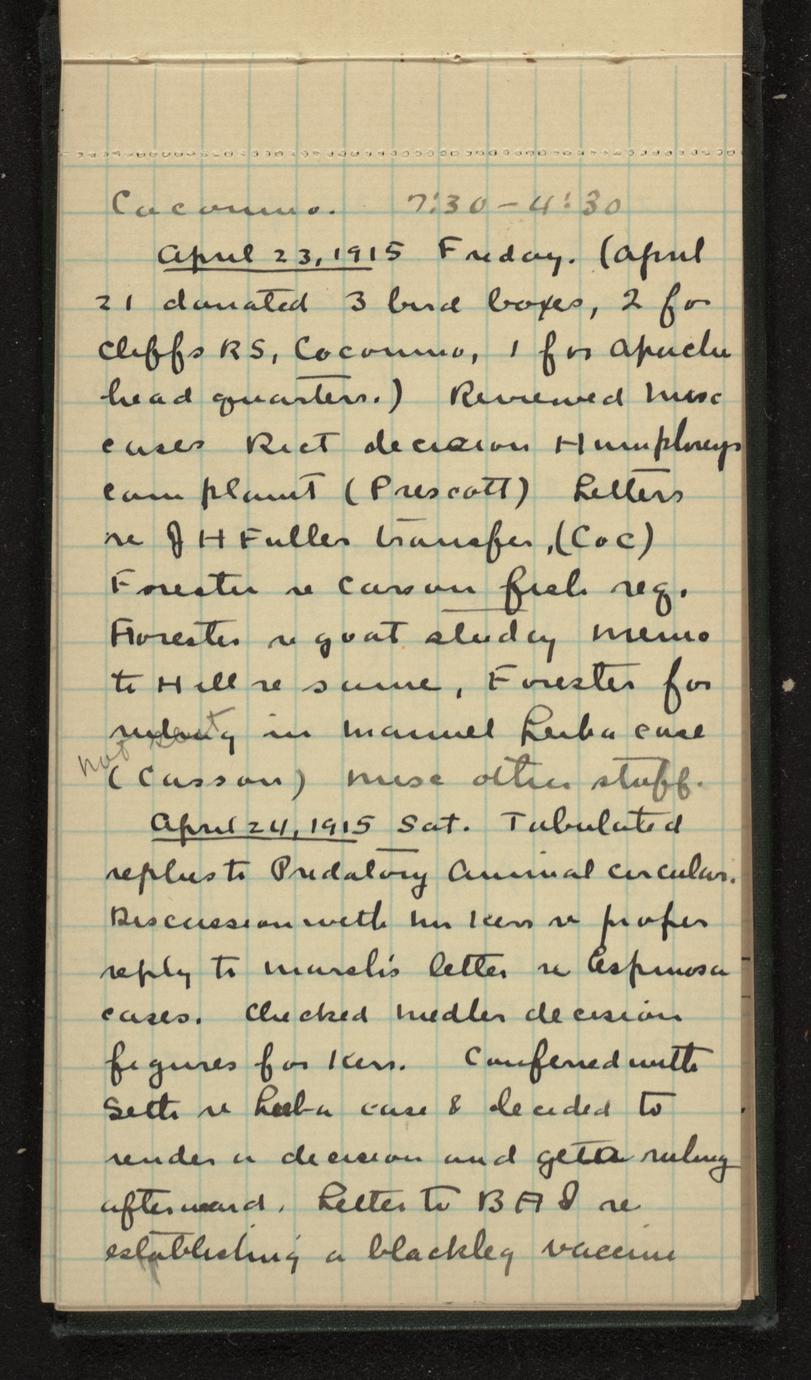 Coconino. 7:30 - 4:30
April 23, 1915 Friday. (April
21 donated 3 bird boxes, 2 for
Cliffs RS, Coconino, 1 for Apache
headquarters.) Reviewed Misc
cases decision Humphreys
complaint (Prescott) Letters
re J H Fuller transfer, (Coc)
Forester re Carson fish reg.
Forester re goat study memo
to Hill re same, Forester for
ruling in Manuel Leiba case
not sent
(Carson) misc other stuff.
April 24, 1915 Sat. Tabulated
replies to Predatory Animal circular.
Discussion with Mr Kerr re proper
reply to Marsh's letter re Espinosa
cases. Checked Medler decision
figures for Kerr. Conferred with
Seth re Leiba case & decided to
render a decision and get a ruling
afterward. Letter to B A I re
establishing a blackleg vaccine